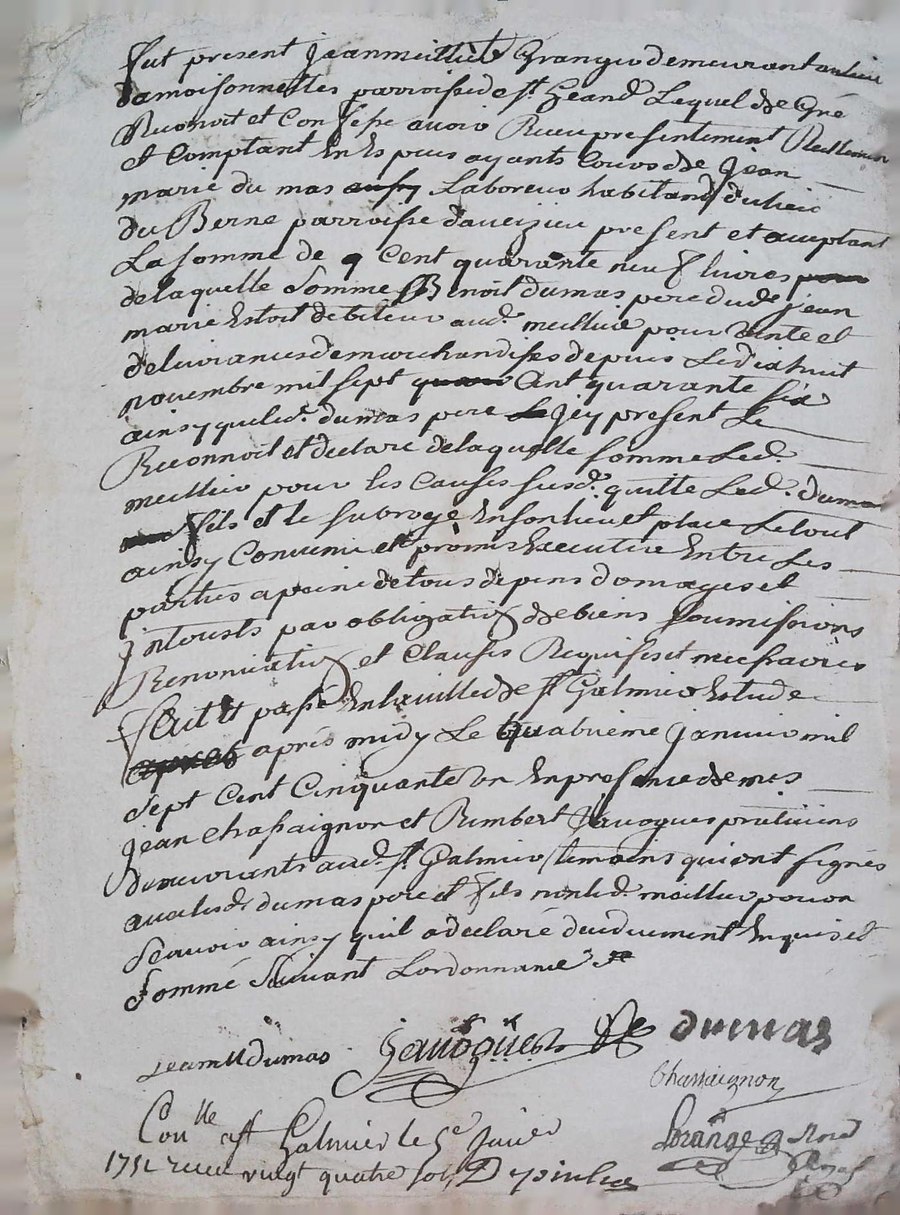 fut present Jean meillier Granger demeurant au lieu
damoisonnettes parroisse de st. Geand Lequel de Gré
Reconnoit et Confesse avoir Receu presentement Reellement
et Comptant En Especes ayants Cours de Jean
marie du mas Laboreur habitand du lieu
du Berne parroisse daveizieu present et acceptant
La somme de Cent quarante neuf livres
de laquelle Somme Benoit dumas pere dud. jean
marie Estoit debiteur aud. meillier pour vente et
delivrances de marchandises depuis Le dixhuit
novembre mil sept Cent quarante six
ainsy que led. dumas pere jcy present Le
Reconnoit et declare de laquelle somme Led.
meillier pour les Causes susd. quitte Led. dumas
fils et le subroge En son lieu et place Le tout
ainsy Convenu et promis Executer Entre Les
parties a peine de tous depens domages et
jnterests par obligation de biens soumissions
Renonciation et Clauses Requises et necessaires
fait et passé En la ville de st. Galmier Estude
apres midy Le quatrieme janvier mil
Sept Cent Cinquante un En presence de mes
jean Chassaignon et Rimbert Javogues praticiens
demeurants aud. st. Galmier temoins qui ont signés
avec lesd. dumas pere et fils non led. meillier pour ne
Scavoir ainsy quil a declaré de ce duement Enquis et
Sommé Suivant Lordonnance
jean m dumas Javogues dumas
Chassaignon
Con.lle a st Galmier le 5e Janvier Lorange
1751 receu vingt quatre sols